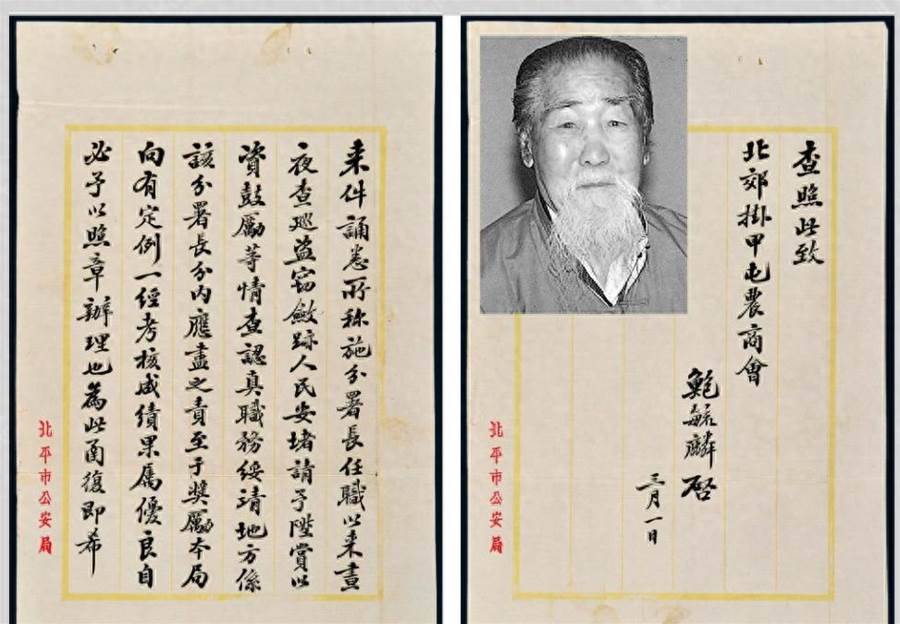 来件誦悉所称施分署長任職以来晝
夜查巡盗窃斂跡人民安堵請予陞賞以
資鼓勵等情查認真職務綏靖地方係
該分署長分内應盡之責至于奬勵本局
向有定例一經考核成績果属優良自
必予以照章辦理也為此函復即希
北平市公安局
查照此致
北郊掛甲屯農商會
鮑毓麟啓
三月一日
北平市公安局